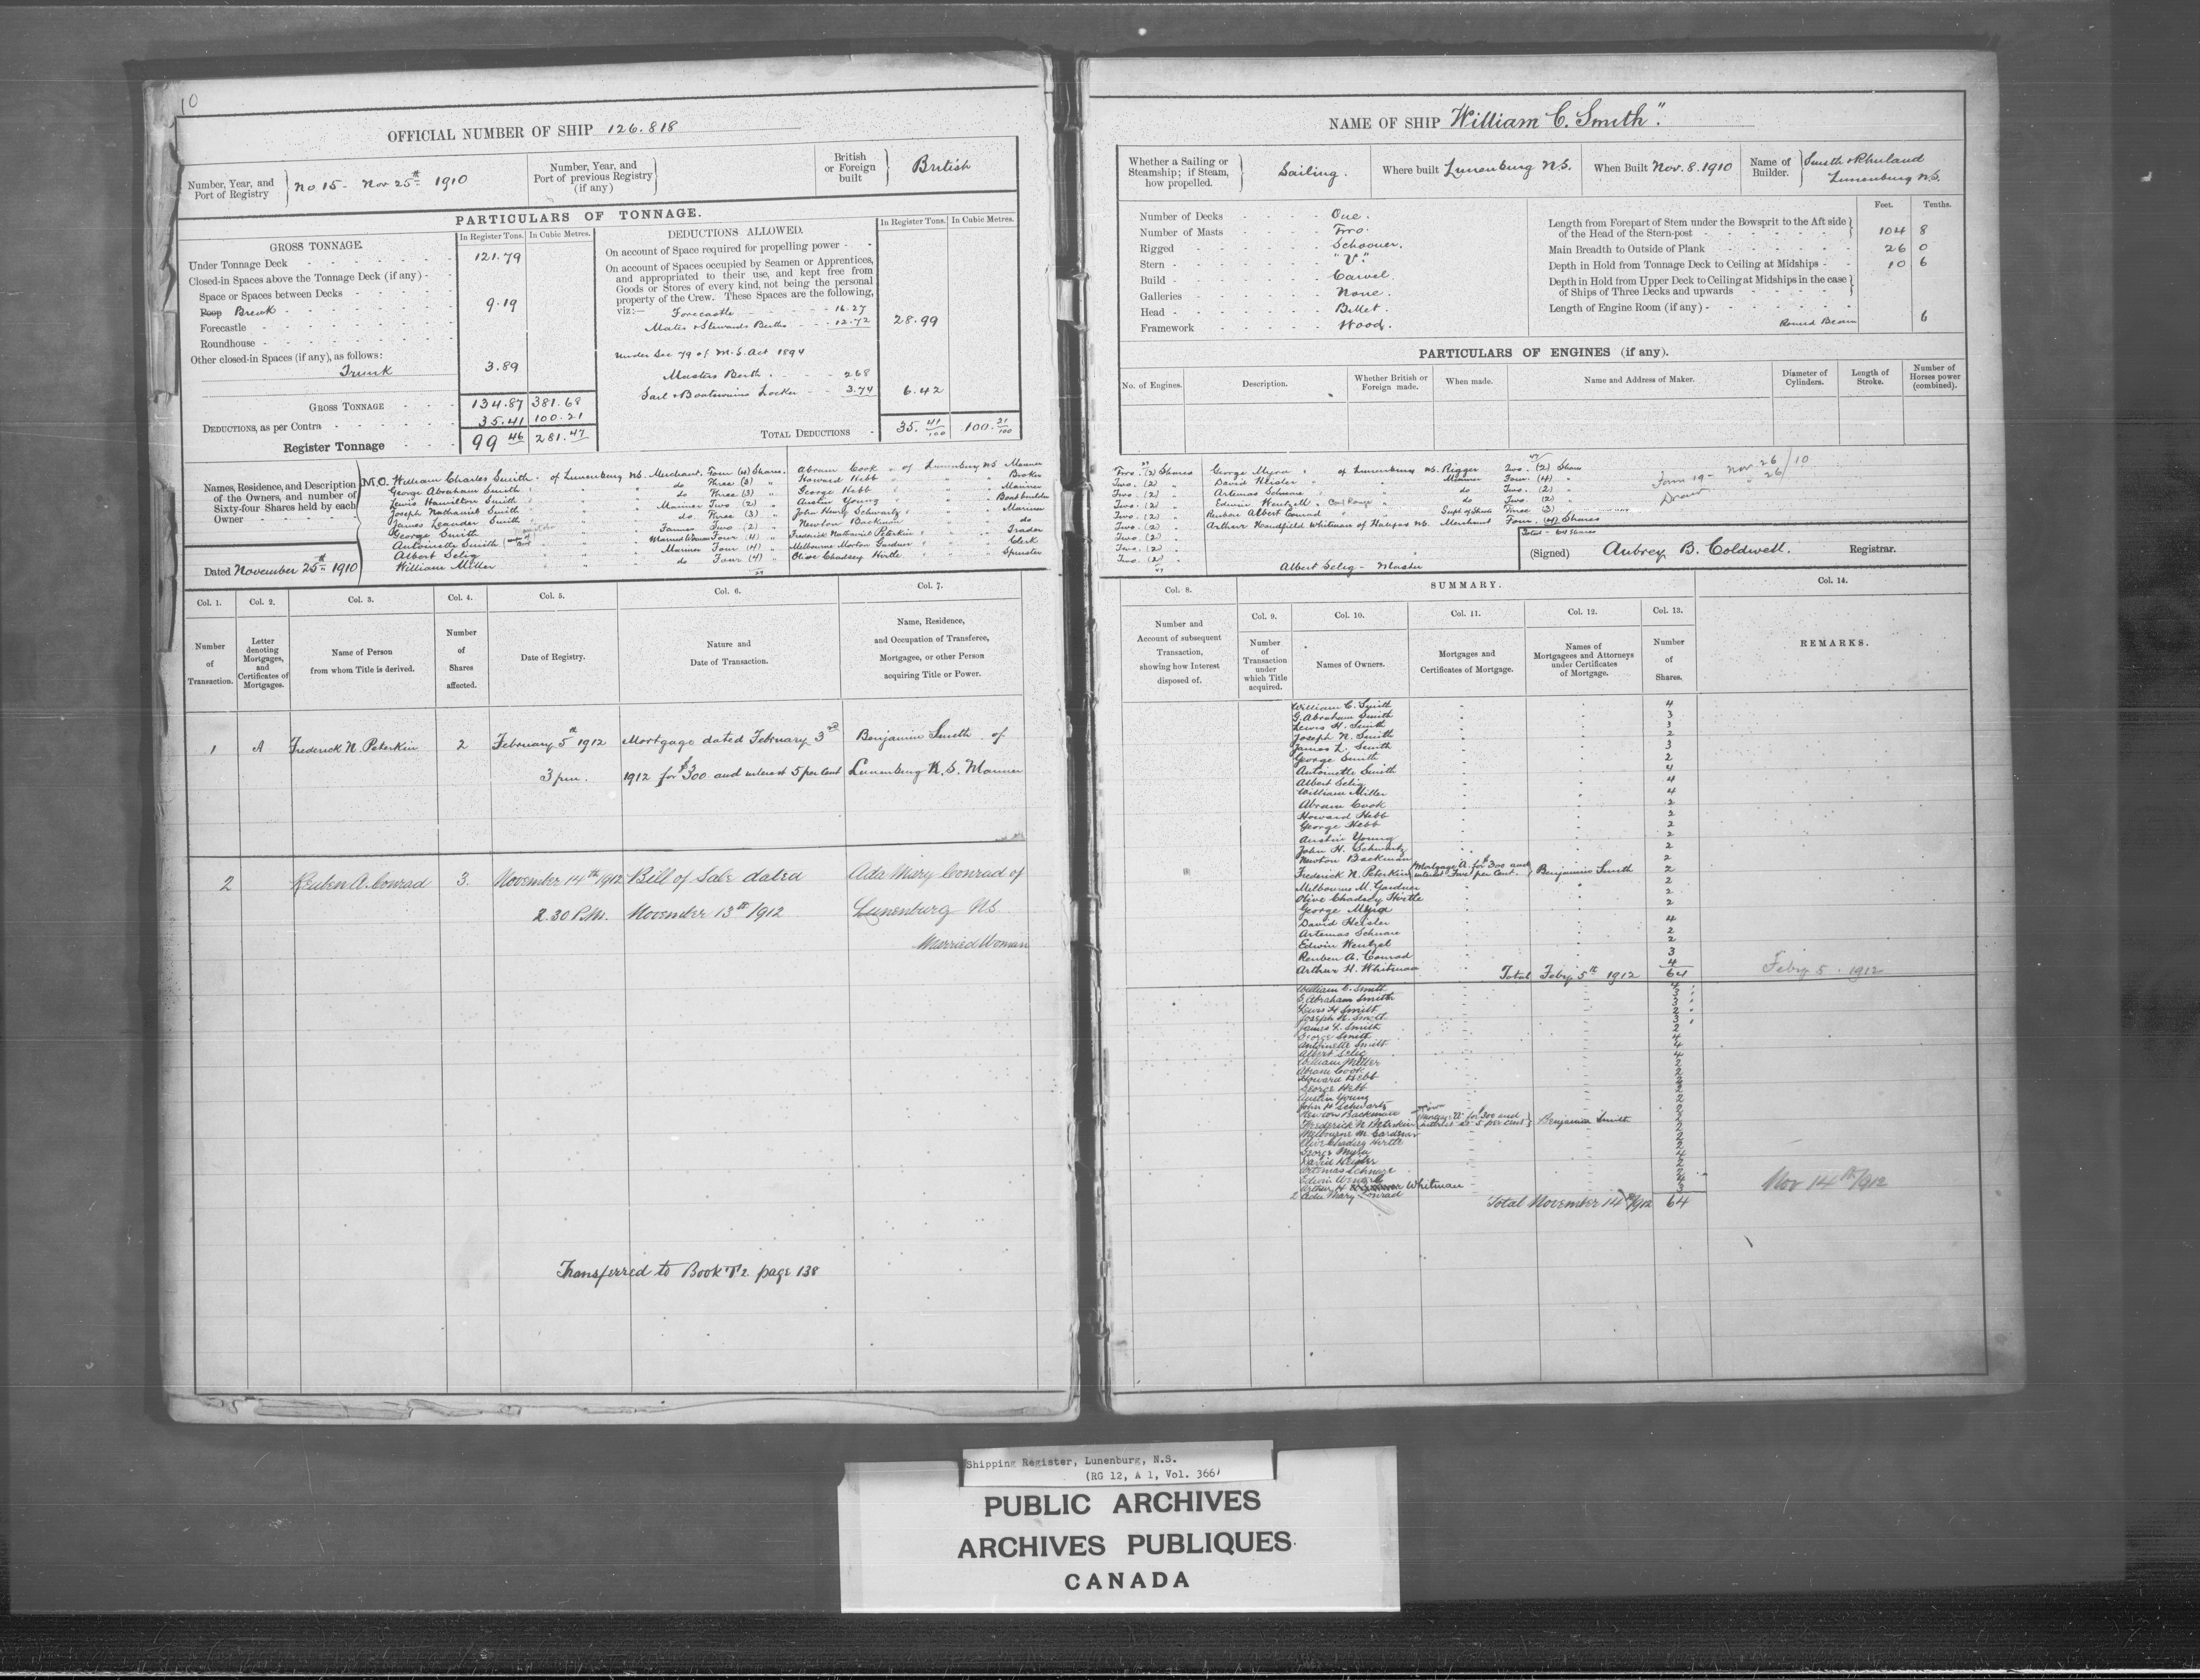 10
OFFICIAL NUMBER OF SHIP 126.818
Number, Year, and Port of Registry } No 15 - Nov 25th 1910
Number, Year, and Port of previous Registry (if any) }
British or Foreign built } British
PARTICULARS OF TONNAGE.
GROSS TONNAGE.
In Register Tons. In Cubic Metres.
Under Tonnage Deck 121.79
Closed-in Spaces above the Tonnage Deck (if any) -
Space or Spaces between Decks
Poop Break 9.19
Forecastle
Roundhouse
Other closed-in Spaces (if any), as follows:
Trunk 3.89
GROSS TONNAGE 134.87 381.68
DEDUCTIONS, as per Contra 35.41 100.21
Register Tonnage 99 46 281.47
DEDUCTIONS ALLOWED.
In Register Tons. In Cubic Metres.
On account of Space required for propelling power
On account of Spaces occupied by Seamen or Apprentices,
and appropriated to their use, and kept free from
Goods or Stores of every kind, not being the personal
property of the Crew. These Spaces are the following,
viz:— Forecastle 16.27
Mates & Stewards Berths 12.72 28.99
Under Sec 79 of M.S. Act 1894
Masters Berth 2.68
Sail & Boatswains Locker 3.74 6.42
TOTAL DEDUCTIONS 35. 41/100 100. 21/100
Names, Residence, and Description of the Owners, and number of Sixty-four Shares held by each Owner
M.O. William Charles Smith of Lunenburg N.S. Merchant Four (4) Shares.
George Abraham Smith " do Three (3) "
Lewis Hamilton Smith " do Three (3) "
Joseph Nathaniel Smith " Mariner Two (2) "
James Leander Smith " do Three (3) "
George Smith " Farmer Two (2) "
Antoinette Smith " Married Woman Four (4) "
Albert Selig " Mariner Four (4) "
William Miller " do Four (4) "
29
Abram Cook of Lunenburg N.S. Mariner
Howard Hebb
George Hebb " Mariner
Austin Young " Boat builder
John Henry Schwartz " Mariner
Newton Backman " do
Frederick Nathaniel Peterkin " Trader
Melbourne Morton Gardner " Clerk
Olive Chadsey Hirtle " Spinster
Dated November 25th 1910
Col. 1. Number of Transaction.
Col. 2. Letter denoting Mortgages, and Certificates of Mortgages.
Col. 3. Name of Person from whom Title is derived.
Col. 4. Number of Shares affected.
Col. 5. Date of Registry.
Col. 6. Nature and Date of Transaction.
Col. 7. Name, Residence, and Occupation of Transferee, Mortgagee, or other Person acquiring Title or Power.
1 A Frederick N. Peterkin 2 February 5th 1912 Mortgage dated February 3rd Benjamin Smith of
3 pm. 1912 for $300 and interest 5 per cent Lunenburg N.S. Mariner
2 Reuben A. Conrad 3. November 14th 1912 Bill of Sale dated Ada Mary Conrad of
2.30 P.M. November 13th 1912 Lunenburg NS
Married Woman
Transferred to Book T2 page 138
NAME OF SHIP William C. Smith".
Whether a Sailing or Steamship; if Steam, how propelled. } Sailing.
Where built Lunenburg N.S.
When Built Nov. 8. 1910
Name of Builder. } Smith & Rhuland Lunenburg N.S.
Number of Decks One.
Number of Masts Two.
Rigged Schooner.
Stern "V."
Build Carvel.
Galleries None.
Head Billet.
Framework Wood.
Feet. Tenths.
Length from Forepart of Stem under the Bowsprit to the Aft side of the Head of the Stern-post 104 8
Main Breadth to Outside of Plank 26 0
Depth in Hold from Tonnage Deck to Ceiling at Midships 10 6
Depth in Hold from Upper Deck to Ceiling at Midships in the case of Ships of Three Decks and upwards
Length of Engine Room (if any)
Round Beam 6
PARTICULARS OF ENGINES (if any).
No. of Engines. Description. Whether British or Foreign made. When made. Name and Address of Maker. Diameter of Cylinders. Length of Stroke. Number of Horses power (combined).
29
Two. (2) Shares
Two. (2) "
Two. (2) "
Two. (2) "
Two. (2) "
Two. (2) "
Two. (2) "
Two. (2) "
Two. (2) "
47
47
George Myra of Lunenburg N.S. Rigger Two. (2) Shares
David Heisler " Mariner Four. (4) "
Artemas Schnare " do Two. (2) "
Edwin Wentzell " do Two. (2) "
Reuben Albert Conrad " Three (3)
Arthur Handfield Whitman of Halifax N.S. Merchant Four. (4) Shares
Total - 64 Shares
Albert Selig - Master
Form 19 - Nov 26/10
26
(Signed) Aubrey B. Coldwell. Registrar.
SUMMARY.
Col. 8. Number and Account of subsequent Transaction, showing how Interest disposed of.
Col. 9. Number of Transaction under which Title acquired.
Col. 10. Names of Owners.
Col. 11. Mortgages and Certificates of Mortgage.
Col. 12. Names of Mortgagees and Attorneys under Certificates of Mortgage.
Col. 13. Number of Shares.
Col. 14. REMARKS.
William C. Smith 4
G. Abraham Smith 3
Lewis H. Smith 3
Joseph N. Smith 2
James L. Smith 3
George Smith 2
Antoinette Smith 4
Albert Selig 4
William Miller 4
Abram Cook 2
Howard Hebb 2
George Hebb 2
Austin Young 2
John H. Schwartz 2
Newton Backman 2
Frederick N. Peterkin { Mortgage A. for $300 and interest Five per cent. } Benjamin Smith 2
Melbourne M. Gardner 2
Olive Chadsey Hirtle 2
George Myra
David Heisler 4
Artemas Schnare 2
Edwin Wentzel 2
Reuben A. Conrad 3
Arthur H. Whitman 4
Total Feby 5th 1912 64 Feby 5. 1912
William C. Smith 4
G. Abraham Smith 3
Lewis H Smith 3
Joseph N. Smith 2
James L. Smith 3
George Smith 2
Antoinette Smith 4
Albert Selig 4
William Miller 4
Abram Cook 2
Howard Hebb 2
George Hebb 2
Austin Young 2
John H Schwartz 2
Newton Backman 2
Frederick N Peterkin { Mortgage "A" for $300 and interest at 5 per cent } Benjamin Smith 2
Melbourne M. Gardner 2
Olive Chadsey Hirtle 2
George Myra 2
David Heisler 4
Artemas Schnare 2
Edwin Wentzell 2
Arthur H Whitman 4
2 Ada Mary Conrad 3
Total November 14th/1912 64 Nov 14th/1912
Shipping Register, Lunenburg, N.S.
(RG 12, A 1, Vol. 366)
PUBLIC ARCHIVES
ARCHIVES PUBLIQUES
CANADA